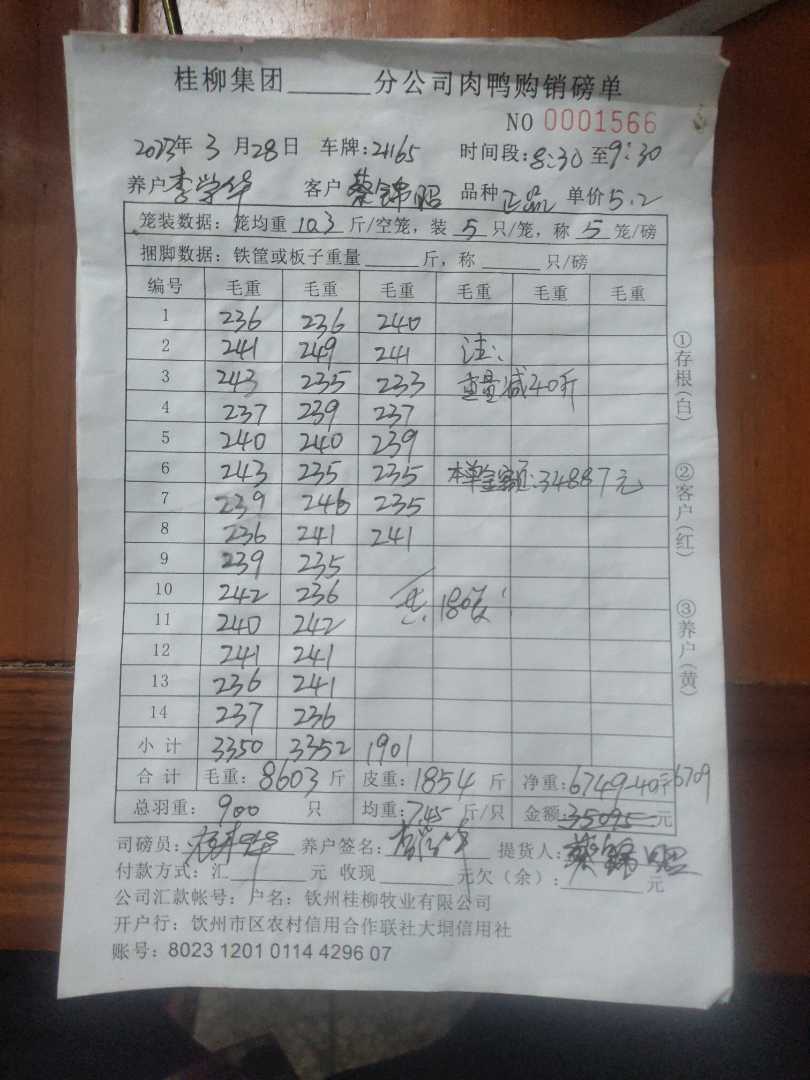 桂柳集团______分公司肉鸭购销磅单
NO 0001566
2023年 3 月 28 日 车牌:21165 时间段:8:30 至 9:30
养户 李学华 客户 蔡锦昭 品种 正品 单价 5.2
笼装数据：笼均重 10.3 斤/空笼，装 5 只/笼，称 5 笼/磅
捆脚数据：铁筐或板子重量______斤，称______只/磅
编号 毛重 毛重 毛重 毛重 毛重 毛重
1 236 236 240
2 241 249 241 注:
3 243 235 233 重量减40斤
4 237 239 237
5 240 240 239
6 243 235 235 本单金额:34887元
7 239 246 235
8 236 241 241
9 239 235
10 242 236 共:180笼
11 240 242
12 241 241
13 236 241
14 237 236
小计 3350 3352 1901
合计 毛重：8603 斤 皮重：1854 斤 净重：6749-40=6709
总羽重：900 只 均重：7.45 斤/只 金额：35095 元
司磅员： 养户签名： 提货人：蔡锦昭
付款方式：汇______元 收现______元欠（余）：______元
公司汇款帐号：户名：钦州桂柳牧业有限公司
开户行：钦州市区农村信用合作联社大垌信用社
账号：8023 1201 0114 4296 07
①存根(白)
②客户(红)
③养户(黄)